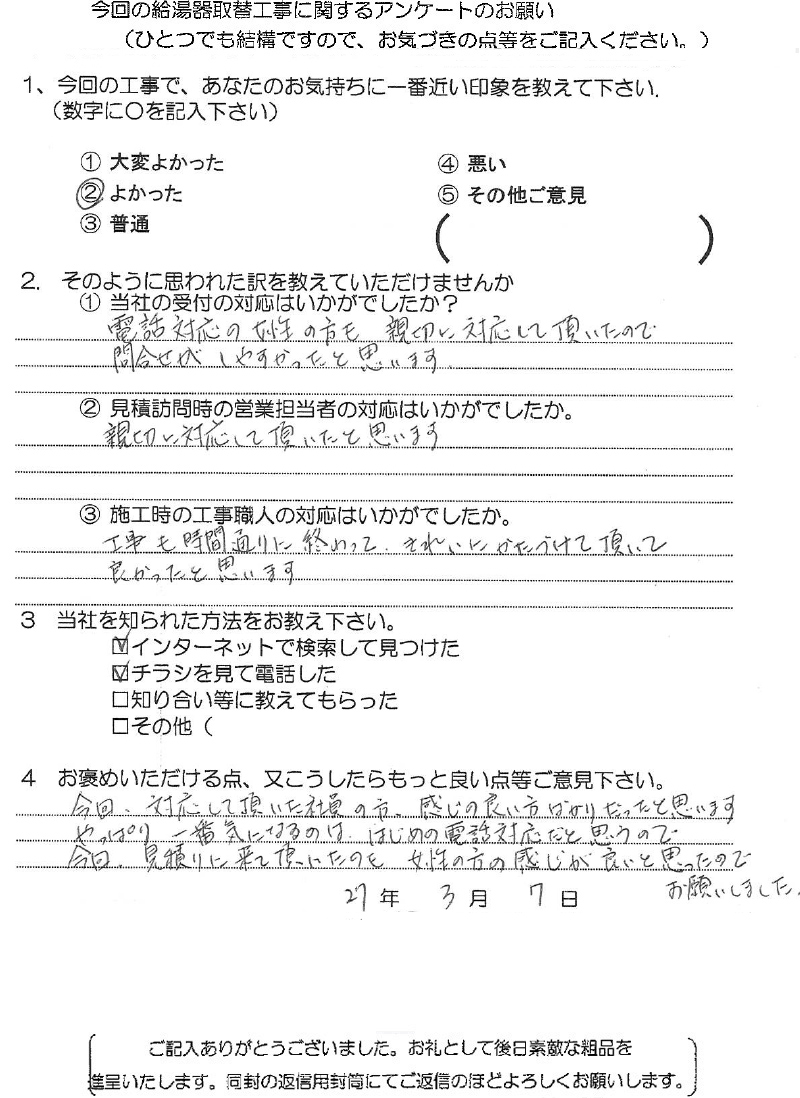 今回の給湯器取替工事に関するアンケートのお願い
（ひとつでも結構ですので、お気づきの点等をご記入ください。）
1、今回の工事で、あなたのお気持ちに一番近い印象を教えて下さい.
（数字に〇を記入下さい）
① 大変よかった
② よかった
③ 普通
④ 悪い
⑤ その他ご意見
（ ）
2. そのように思われた訳を教えていただけませんか
① 当社の受付の対応はいかがでしたか？
電話対応の女性の方も 親切に対応して頂いたので
問合せがしやすかったと思います.
② 見積訪問時の営業担当者の対応はいかがでしたか。
親切に対応して頂いたと思います
③ 施工時の工事職人の対応はいかがでしたか。
工事も時間通りに終わって、きれいにかたづけて頂いて
良かったと思います
3 当社を知られた方法をお教え下さい。
☑インターネットで検索して見つけた
☑チラシを見て電話した
□知り合い等に教えてもらった
□その他（
4 お褒めいただける点、又こうしたらもっと良い点等ご意見下さい。
今回、対応して頂いた社員の方、感じの良い方ばかりだったと思います
やっぱり一番気になるのは、はじめの電話対応だと思うので
今回、見積りに来て頂いたのも 女性の方の感じが良いと思ったので
お願いしました.
27年 3月 7日
ご記入ありがとうございました。お礼として後日素敵な粗品を
進呈いたします。同封の返信用封筒にてご返信のほどよろしくお願いします。